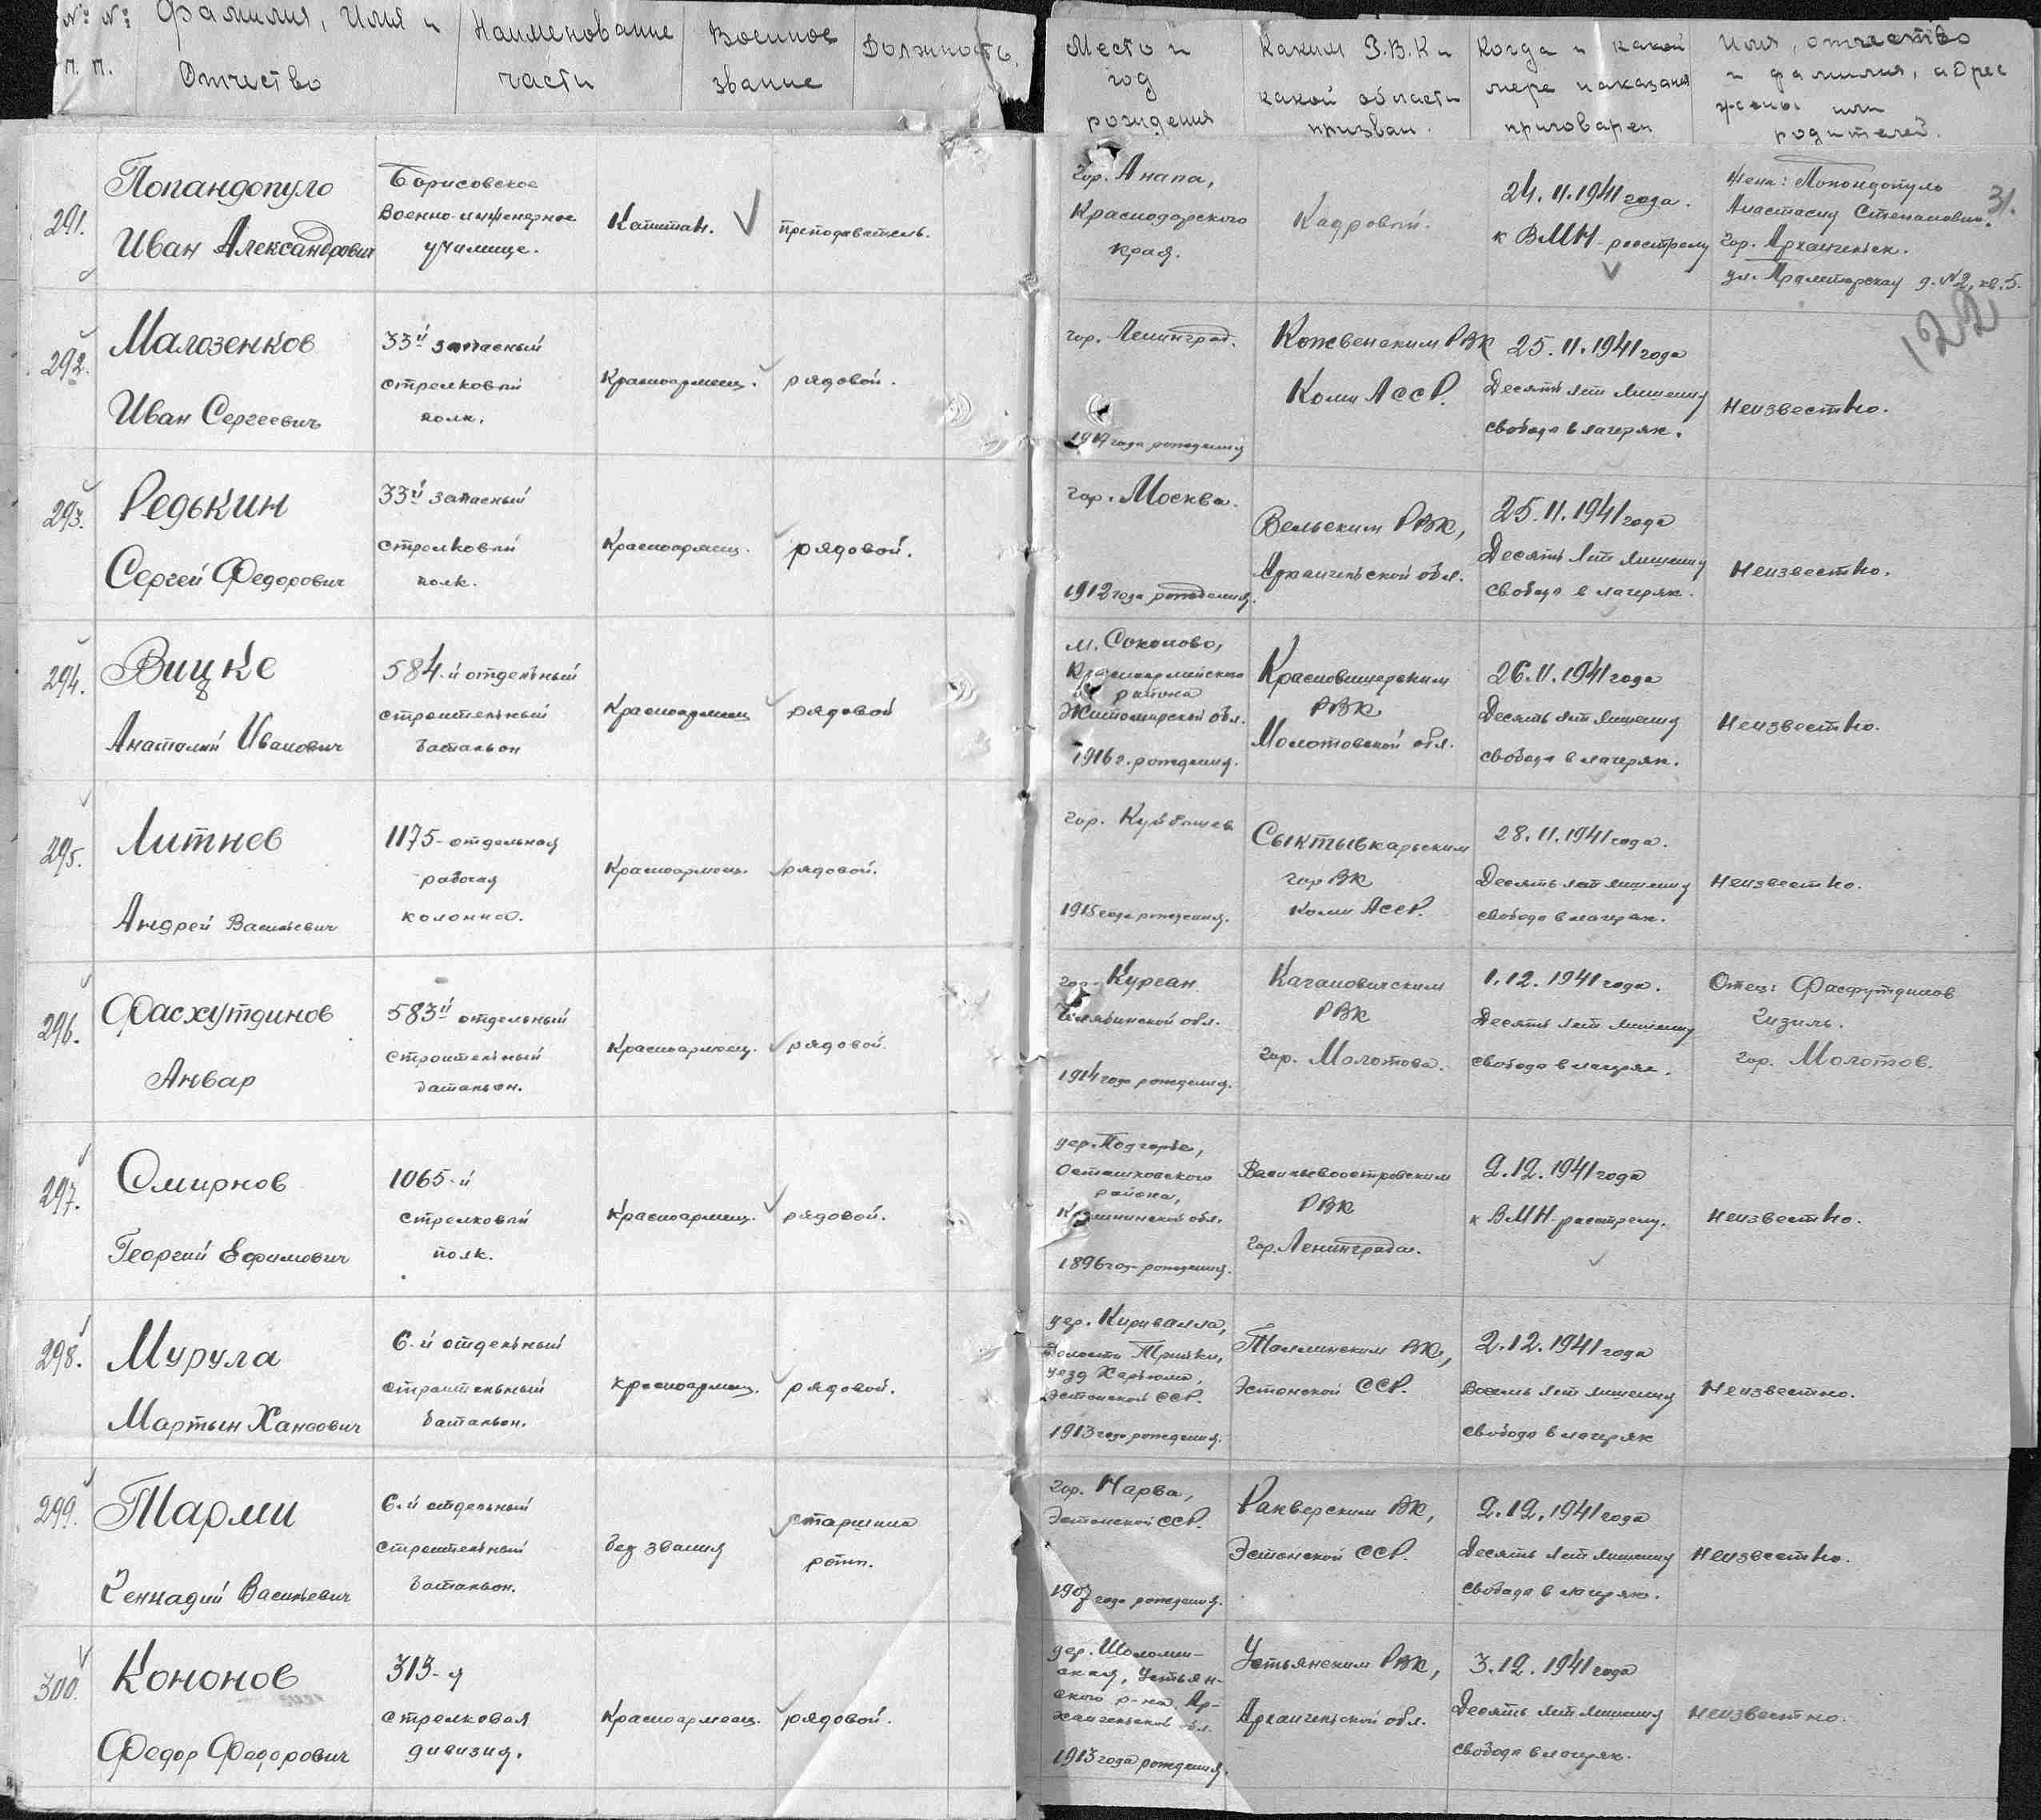 № № Фамилия, Имя и
п. п. Отчество
Наименование
части
Военное
звание
Должность.
Место и
год
рождения
Каким Р.В.К и
какой области
призван.
Когда и какой
мере наказания
приговорен
Имя, отчество
и фамилия, адрес
жены или
родителей.
31.
122
291.
Попандопуло
Иван Александрович
Борисовское
Военно-инженерное
училище.
Капитан.
преподаватель.
гор. Анапа,
Краснодарского
края.
Кадровый.
24.11.1941 года.
к ВМН-расстрелу
Жена: Попондопуль
Анастасия Степановна.
гор. Архангельск.
ул. Пролетарская д. №2, кв. 5.
292.
Малозенков
Иван Сергеевич
33й запасный
стрелковый
полк.
Красноармеец.
рядовой.
гор. Ленинград.
года рождения
Кожвенским РВК
Коми АССР.
25.11.1941 года
Десять лет лишения
свобода в лагерях.
Неизвестно.
293.
Редькин
Сергей Федорович
33й запасный
стрелковый
полк.
Красноармеец.
рядовой.
гор. Москва.
1912 года рождения.
Вельским РВК,
Архангельской обл.
25.11.1941 года
Десять лет лишения
свобода в лагерях.
Неизвестно.
294.
Вицке
Анатолий Иванович
584-й отдельный
строительный
батальон
Красноармеец
рядовой
м. Соколово,
Красноармейского
района
Житомирской обл.
1916 г. рождения.
Красновишерским
РВК
Молотовской обл.
26.11.1941 года
Десять лет лишения
свобода в лагерях.
Неизвестно.
295.
Литнев
Андрей Васильевич
1175-отдельная
рабочая
колонна.
Красноармеец.
рядовой.
гор. Куйбышев
1915 года рождения.
Сыктывкарским
гор ВК
Коми АССР.
28.11.1941 года.
Десять лет лишения
свобода в лагерях.
Неизвестно.
296.
Фасхутдинов
Анвар
583й отдельный
строительный
батальон.
Красноармеец.
рядовой.
гор. Курган
Челябинской обл.
1914 года рождения.
Кагановичским
РВК
гор. Молотова.
1.12.1941 года.
Десять лет лишения
свобода в лагерях.
Отец: Фасфутдинов
Гизиль.
гор. Молотов.
297.
Смирнов
Георгий Ефимович
1065-й
стрелковый
полк.
Красноармеец.
рядовой.
дер. Подгорье,
Осташковского
района,
Калининской обл.
1896 год рождения.
Василеостровским
РВК
гор. Ленинграда.
2.12.1941 года
к ВМН-расстрелу.
Неизвестно.
298.
Мурула
Мартын Хансович
6-й отдельный
строительный
батальон.
красноармеец.
рядовой.
дер. Киривалла,
волости
уезд Харьюма,
Эстонской ССР.
1913 года рождения.
Таллинским ВК,
Эстонской ССР.
2.12.1941 года
Восемь лет лишения
свобода в лагерях
Неизвестно.
299.
Тарми
Геннадий Васильевич
6-й отдельный
строительный
батальон.
без звания
старшина
роты.
гор. Нарва,
Эстонской ССР.
1907 года рождения.
Раквереским ВК,
Эстонской ССР.
2.12.1941 года
Десять лет лишения
свобода в лагерях.
Неизвестно.
300.
Кононов
Федор Федорович
313-я
стрелковая
дивизия.
Красноармеец.
рядовой.
дер. Шоломин-
ская, Устьян-
ского р-на, Ар-
хангельской обл.
1913 года рождения.
Устьянским РВК,
Архангельской обл.
3.12.1941 года
Десять лет лишения
свобода в лагерях.
Неизвестно.